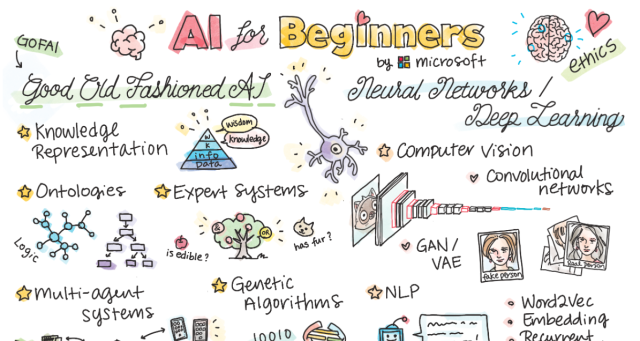 GOFAI
AI for Beginners
by microsoft
ethics
Good Old Fashioned AI
Neural Networks /
Deep Learning
Knowledge
Representation
wisdom
knowledge
W
K
info
Data
Computer Vision
Convolutional
networks
Ontologies
Expert Systems
Logic
&
OR
is edible?
has fur?
GAN/
VAE
fake person
real person
Multi-agent
systems
Genetic
Algorithms
NLP
Word2Vec
Embedding
Recurrent
10010